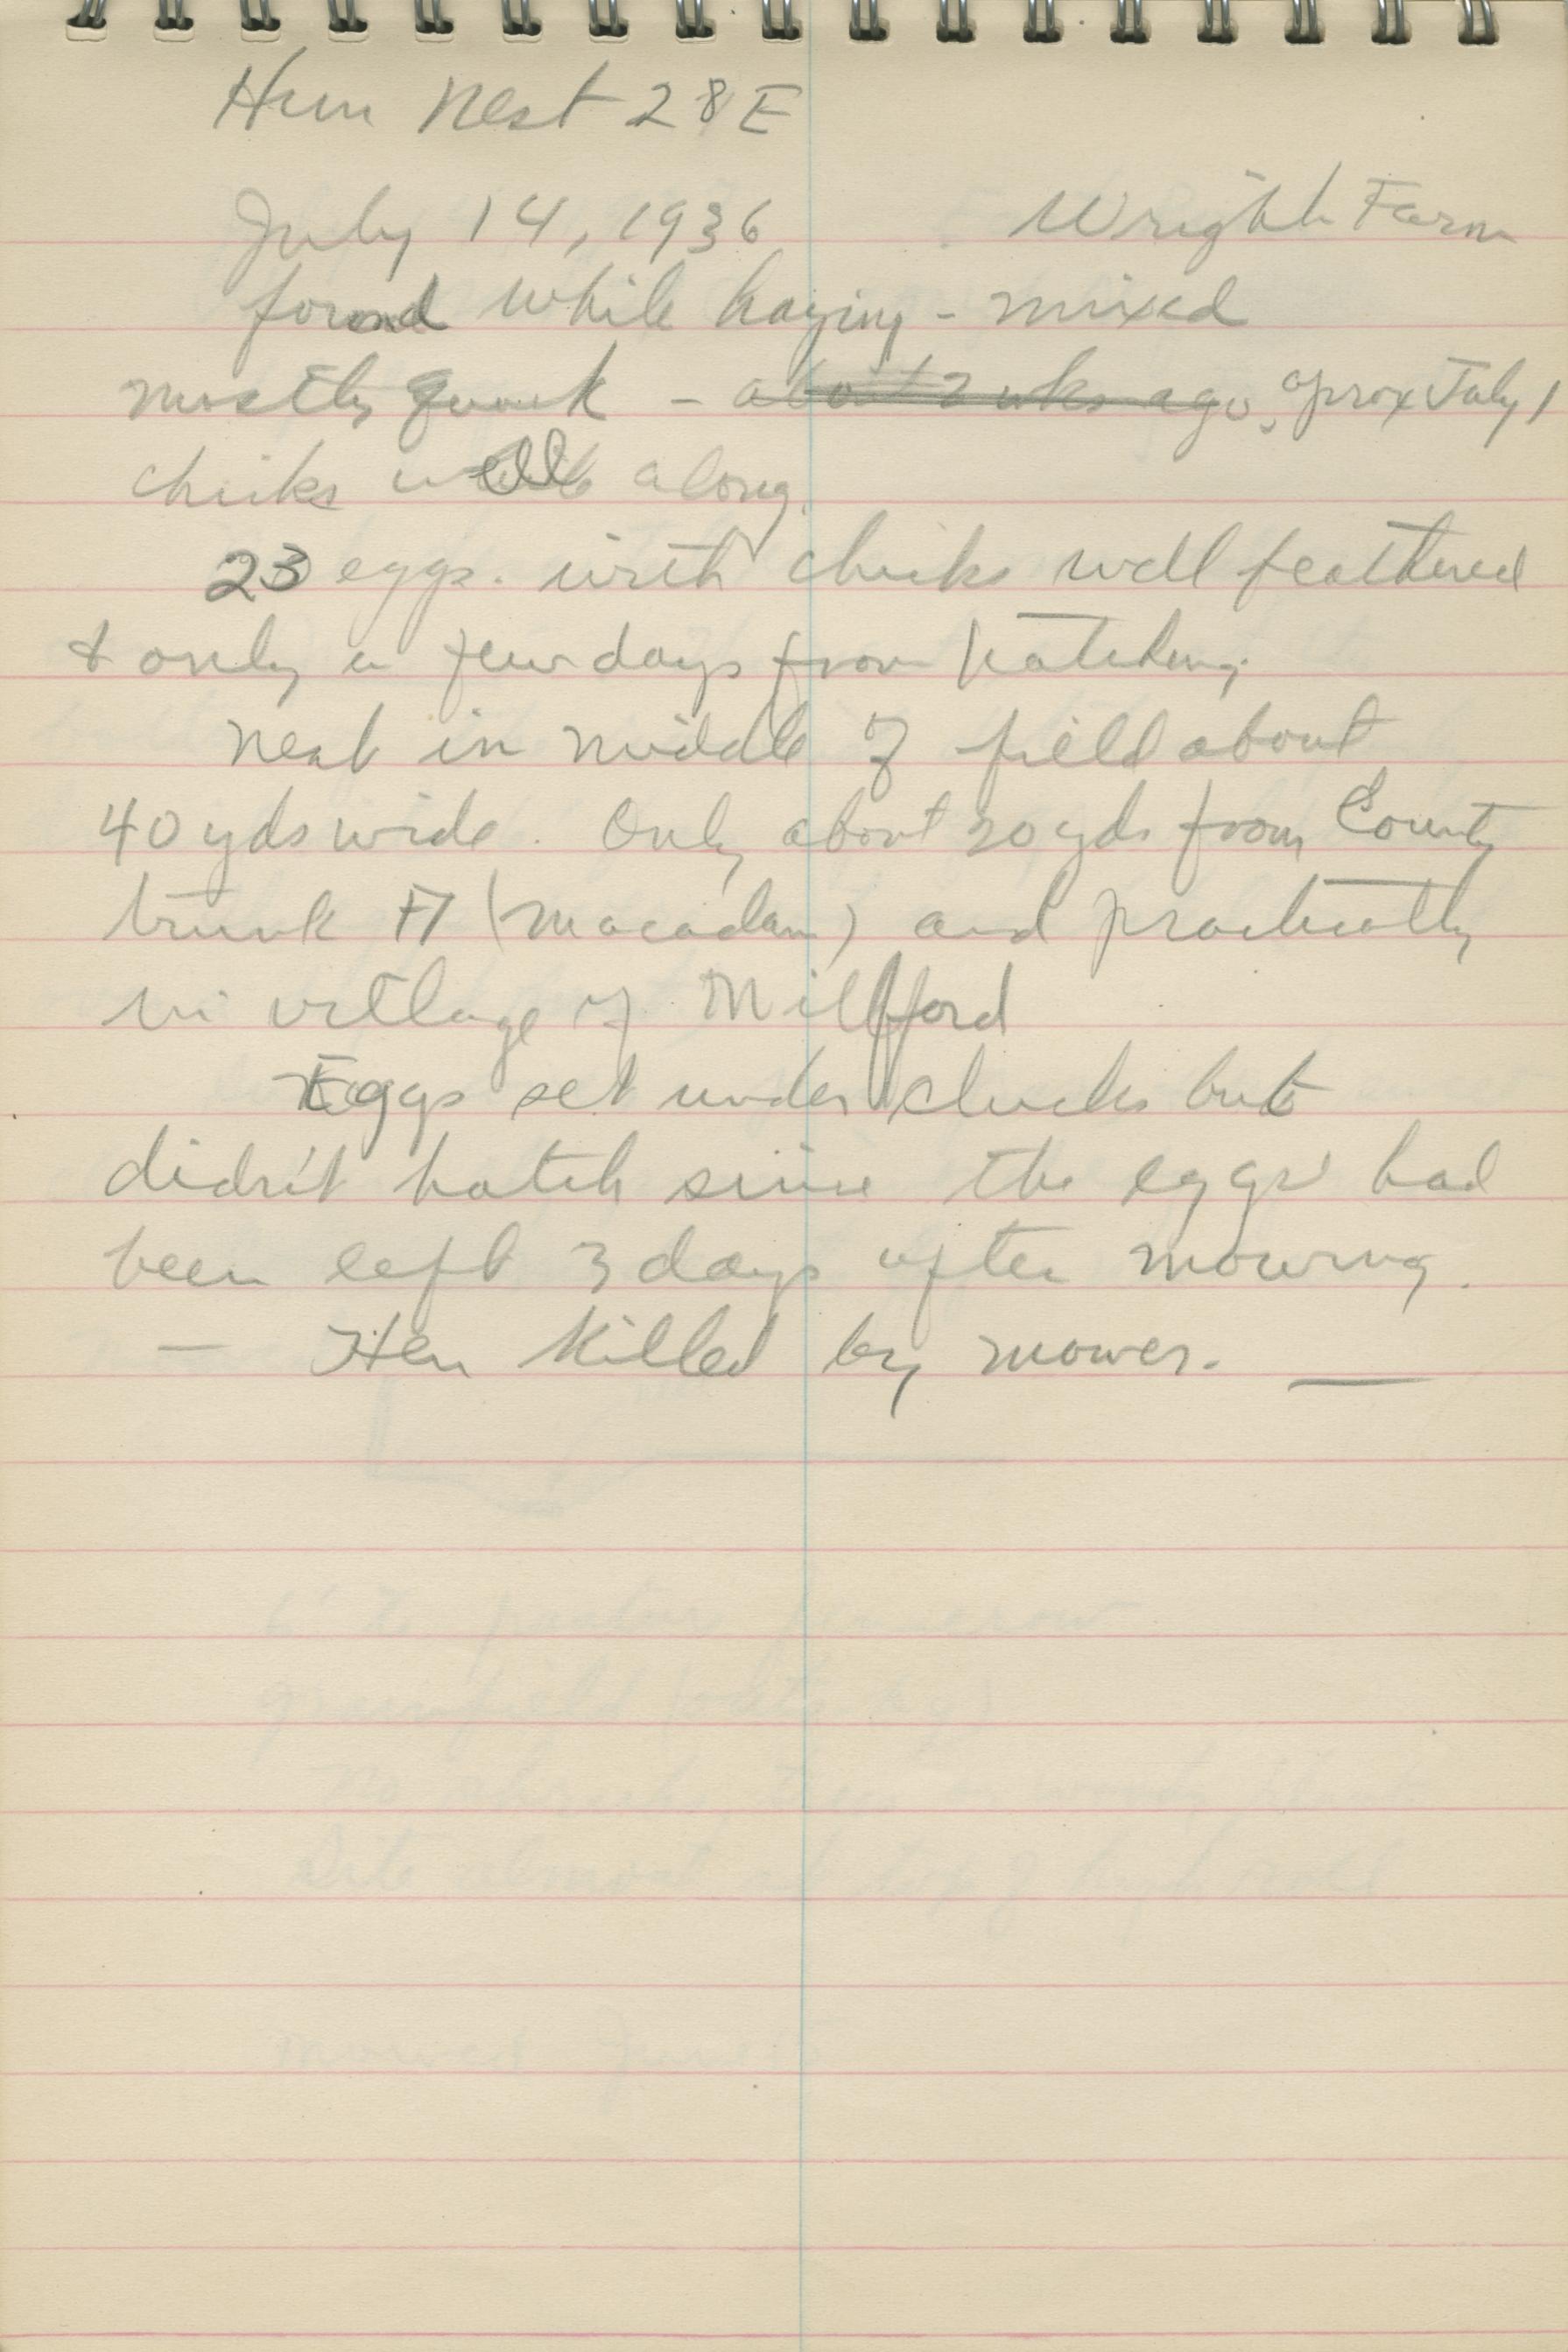 Hun Nest 28E
July 14, 1936 Wright Farm
found while haying - mixed
mostly quack - about 2 wks ago, aprox July 1
chicks well along.
23 eggs. with chicks well feathered
& only a few days from hatching.
Nest in middle of field about
40 yds wide. Only about 20 yds from County
trunk A (macadam) and practically
in village of Millford
Eggs set under clucks but
didn't hatch since the eggs had
been left 3 days after mowing.
— Hen killed by mower. —